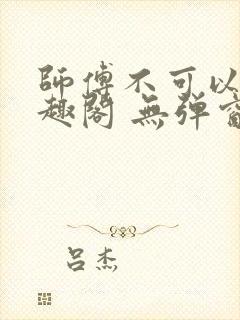 師傅不可以
趣閣 無彈窗
吕杰